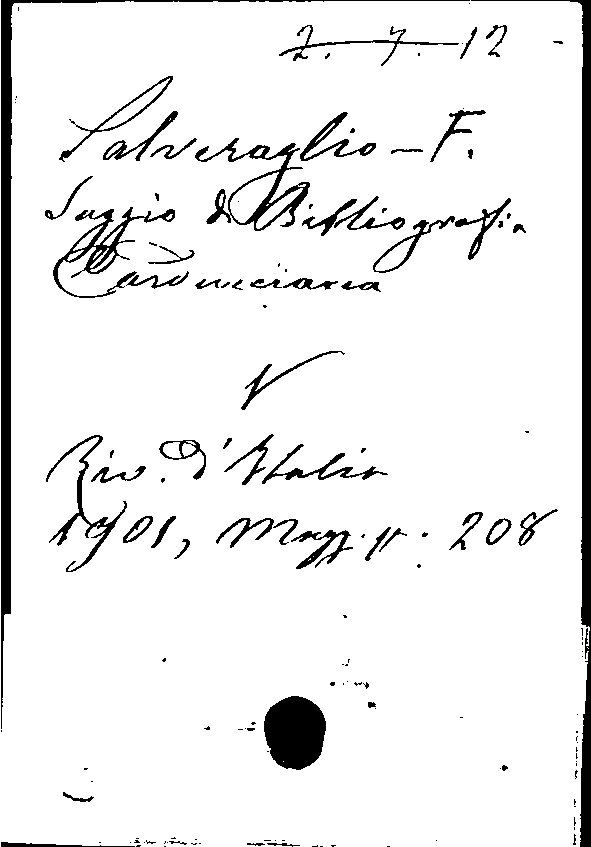 2. 7. 12
Salveraglio - F.
Saggio di Bibliografia
Carducciana
V
Riv. d'Italia
1901, Magg. p. 208